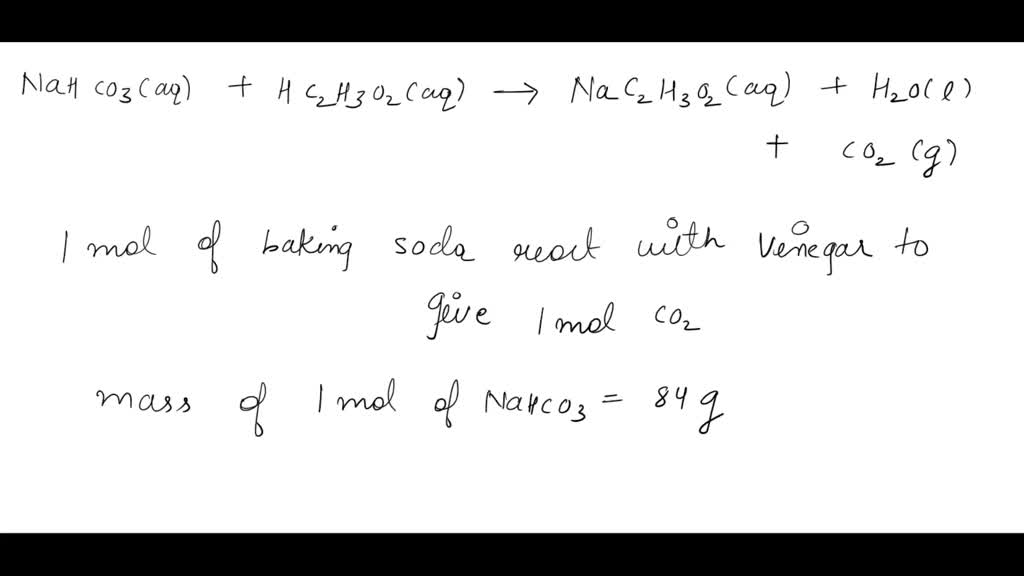 NaHCO3(aq) + HC2H3O2(aq) → NaC2H3O2(aq) + H2O(l)
+ CO2(g)
1 mol of baking soda react with venegar to
give 1 mol CO2
mass of 1 mol of NaHCO3 = 84 g